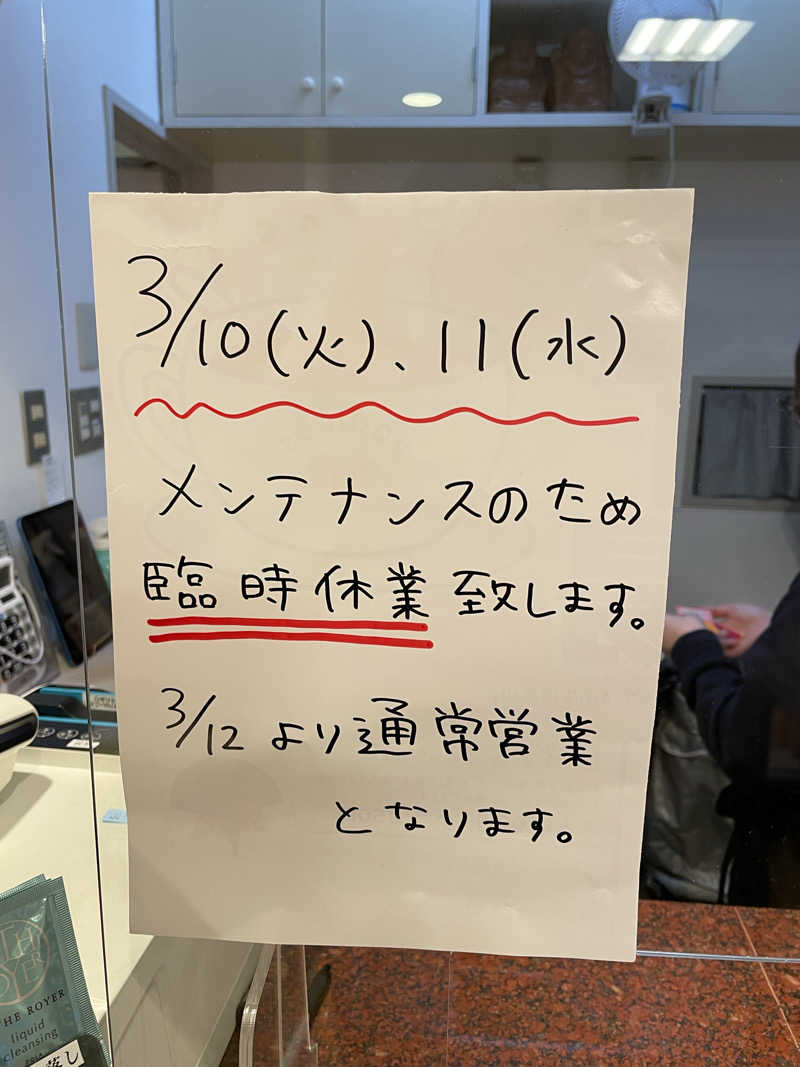 3/10(火)、11(水)
メンテナンスのため
臨時休業致します。
3/12より通常営業
となります。
THE ROYER
liquid
cleansing